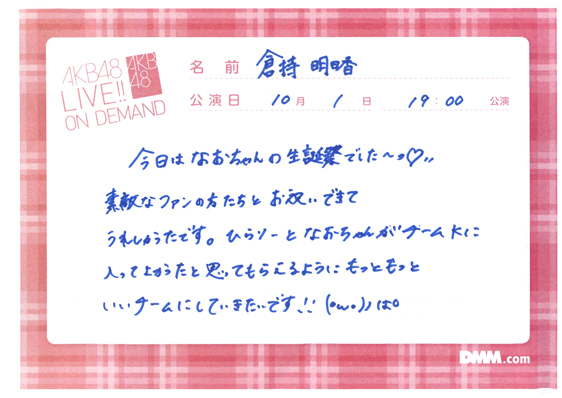 AKB48
LIVE!!
ON DEMAND
AKB
48
名前 倉持 明日香
公演日 10月 1日 19:00 公演
今日はなおちゃんの生誕祭でした〜っ♡!!
素敵なファンの方たちとお祝いできて
うれしかったです。ひらりーとなおちゃんがチームKに
入ってよかったと思ってもらえるようにもっともっと
いいチームにしていきたいです!!
DMM.com